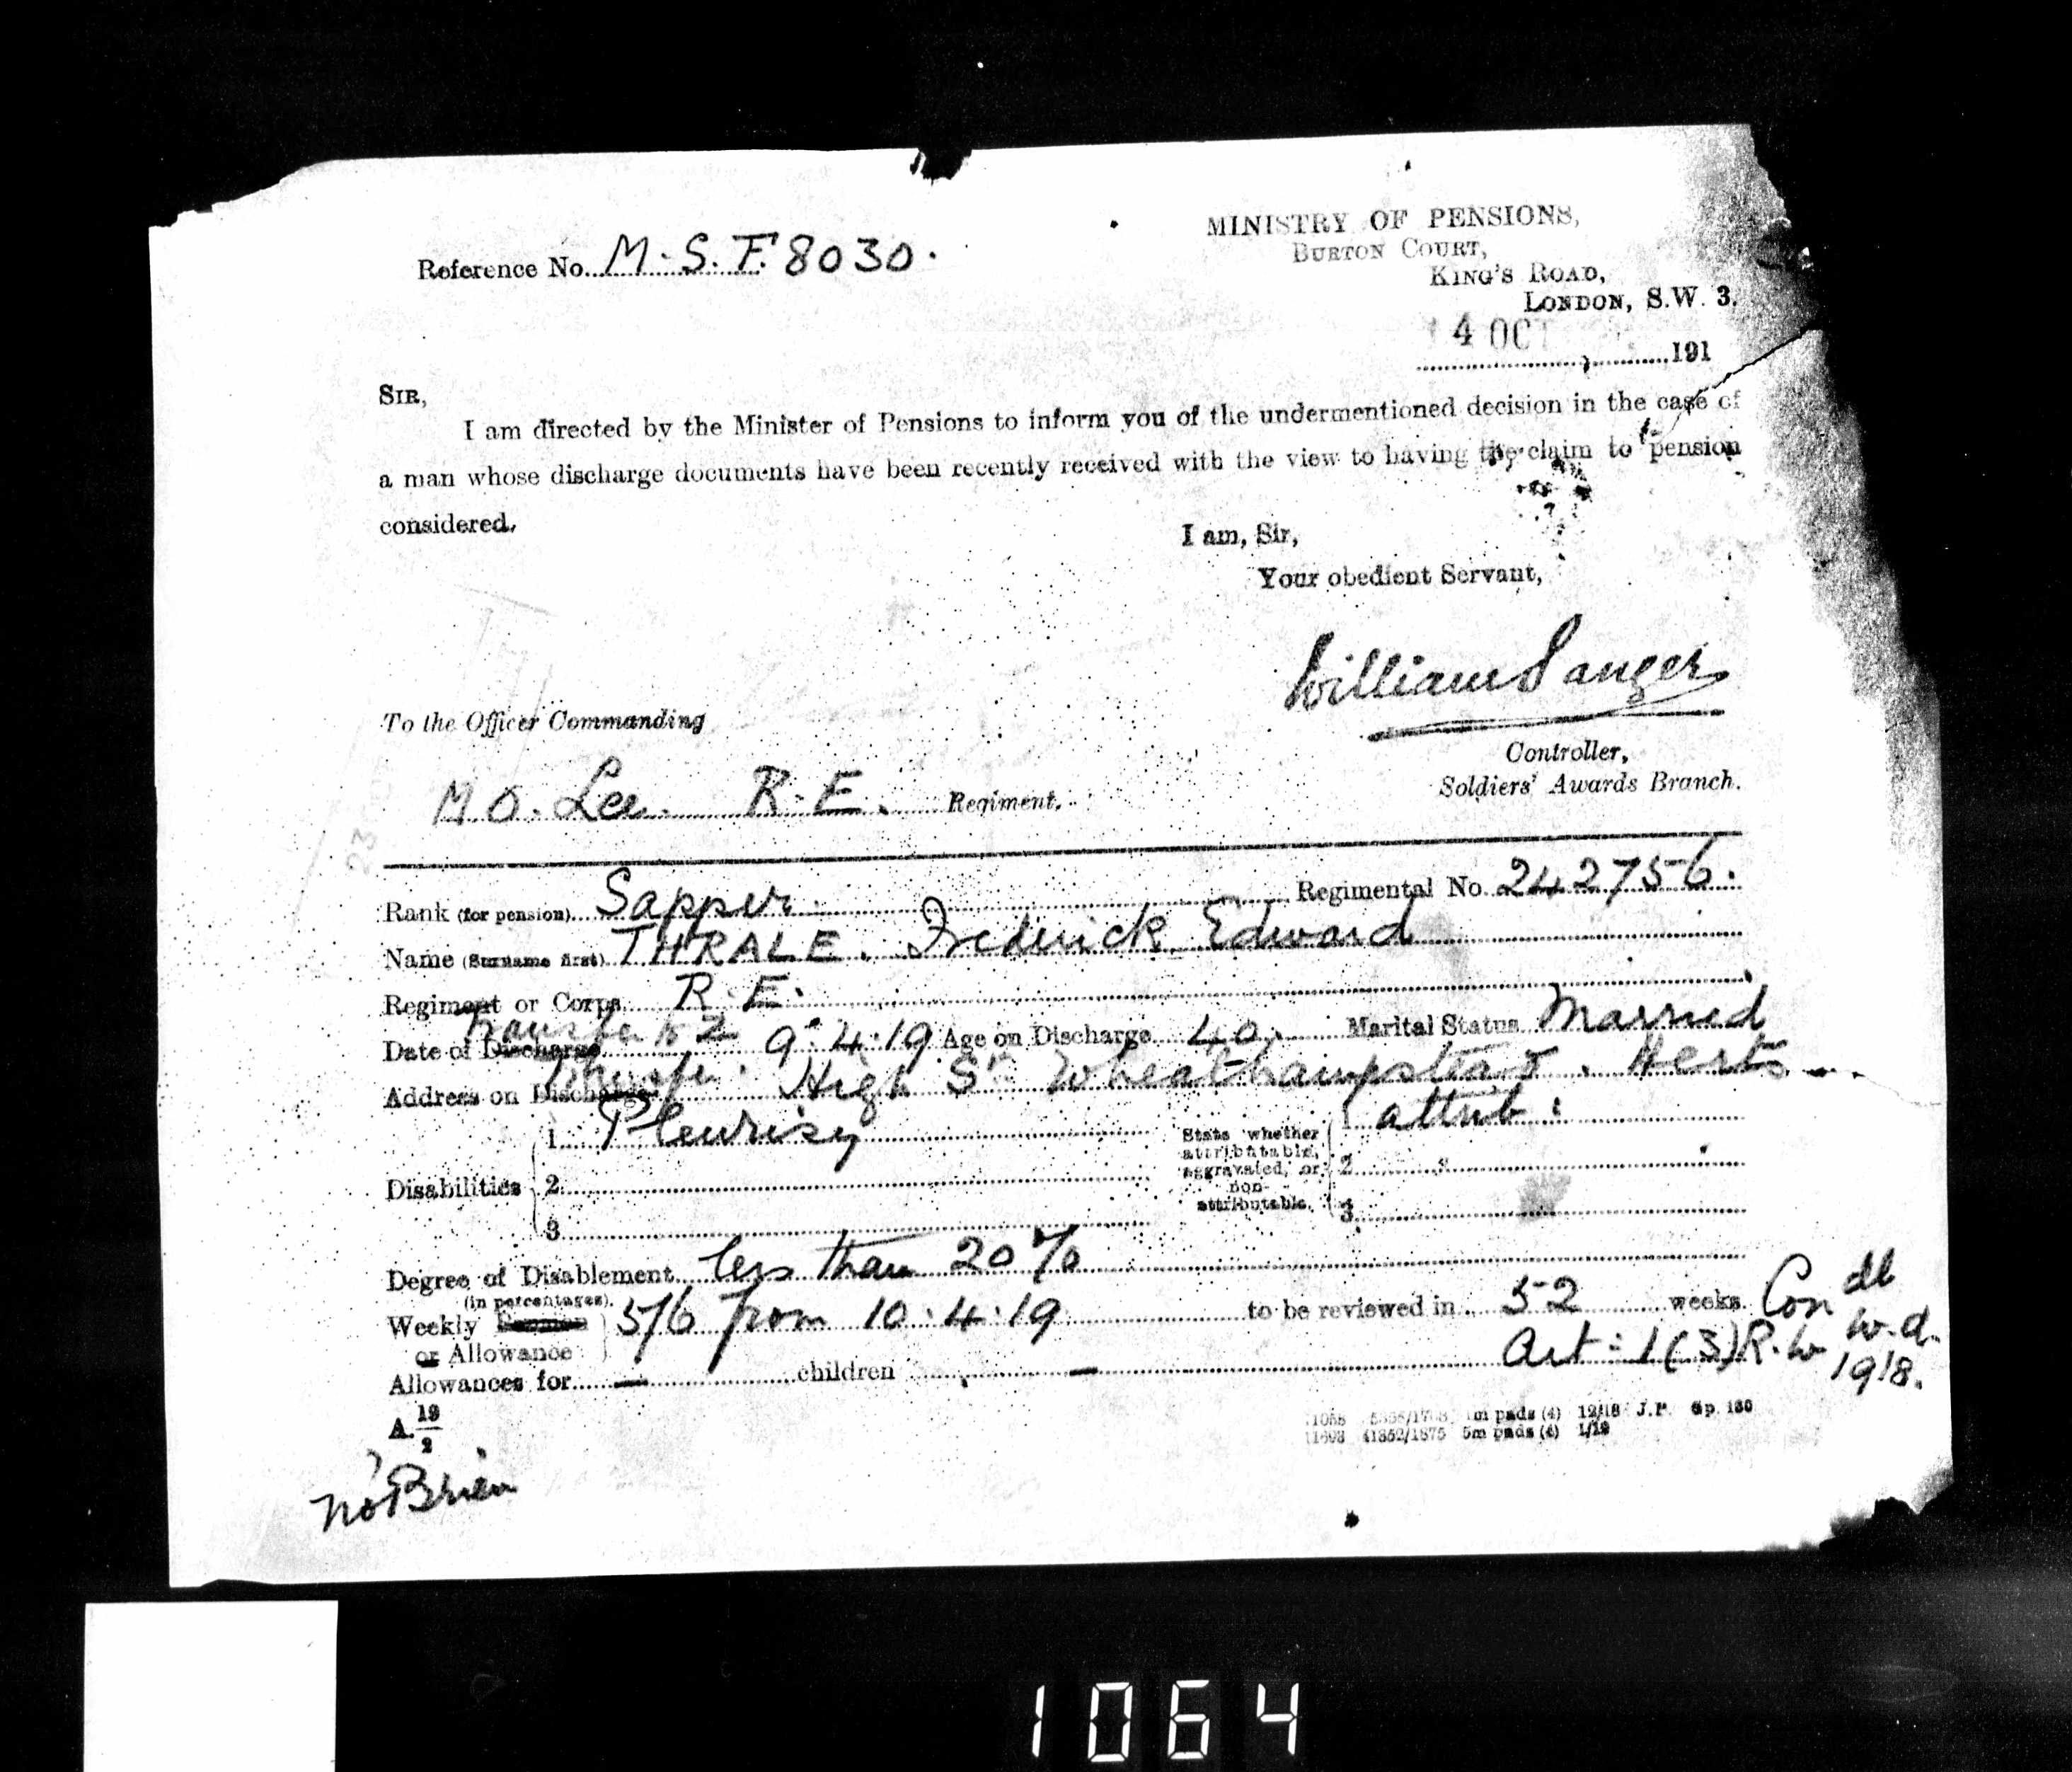 MINISTRY OF PENSIONS,
BURTON COURT,
KING'S ROAD,
LONDON, S.W. 3.
Reference No. M.S.F. 8030.
4 OCT 191
SIR,
I am directed by the Minister of Pensions to inform you of the undermentioned decision in the case of
a man whose discharge documents have been recently received with the view to having the claim to pension
considered.
I am, Sir,
Your obedient Servant,
William Sanger
Controller,
Soldiers' Awards Branch.
To the Officer Commanding
R.E. Regiment.
Rank (for pension) Sapper Regimental No. 242756.
Name (Surname first) THRALE. Frederick Edward
Regiment or Corps R.E.
Transfer to Z
Date of Discharge 9.4.19 Age on Discharge 40. Marital Status Married
Transfer.
Address on Discharge High St Wheathampstead. Herts
Disabilities 1 Pleurisy
2
3
State whether attributable, aggravated, or non-attributable. 1 attrib:
2
3
Degree of Disablement less than 20%
(in percentages).
Weekly or Allowance 5/6 from 10.4.19 to be reviewed in 52 weeks Con
Art: 1(3) R.W 1918.
Allowances for — children —
A. 19/2
1m pads (4) 12/18 J.P. Gp. 130
5m pads (4) 1/19
O'Brien
1064